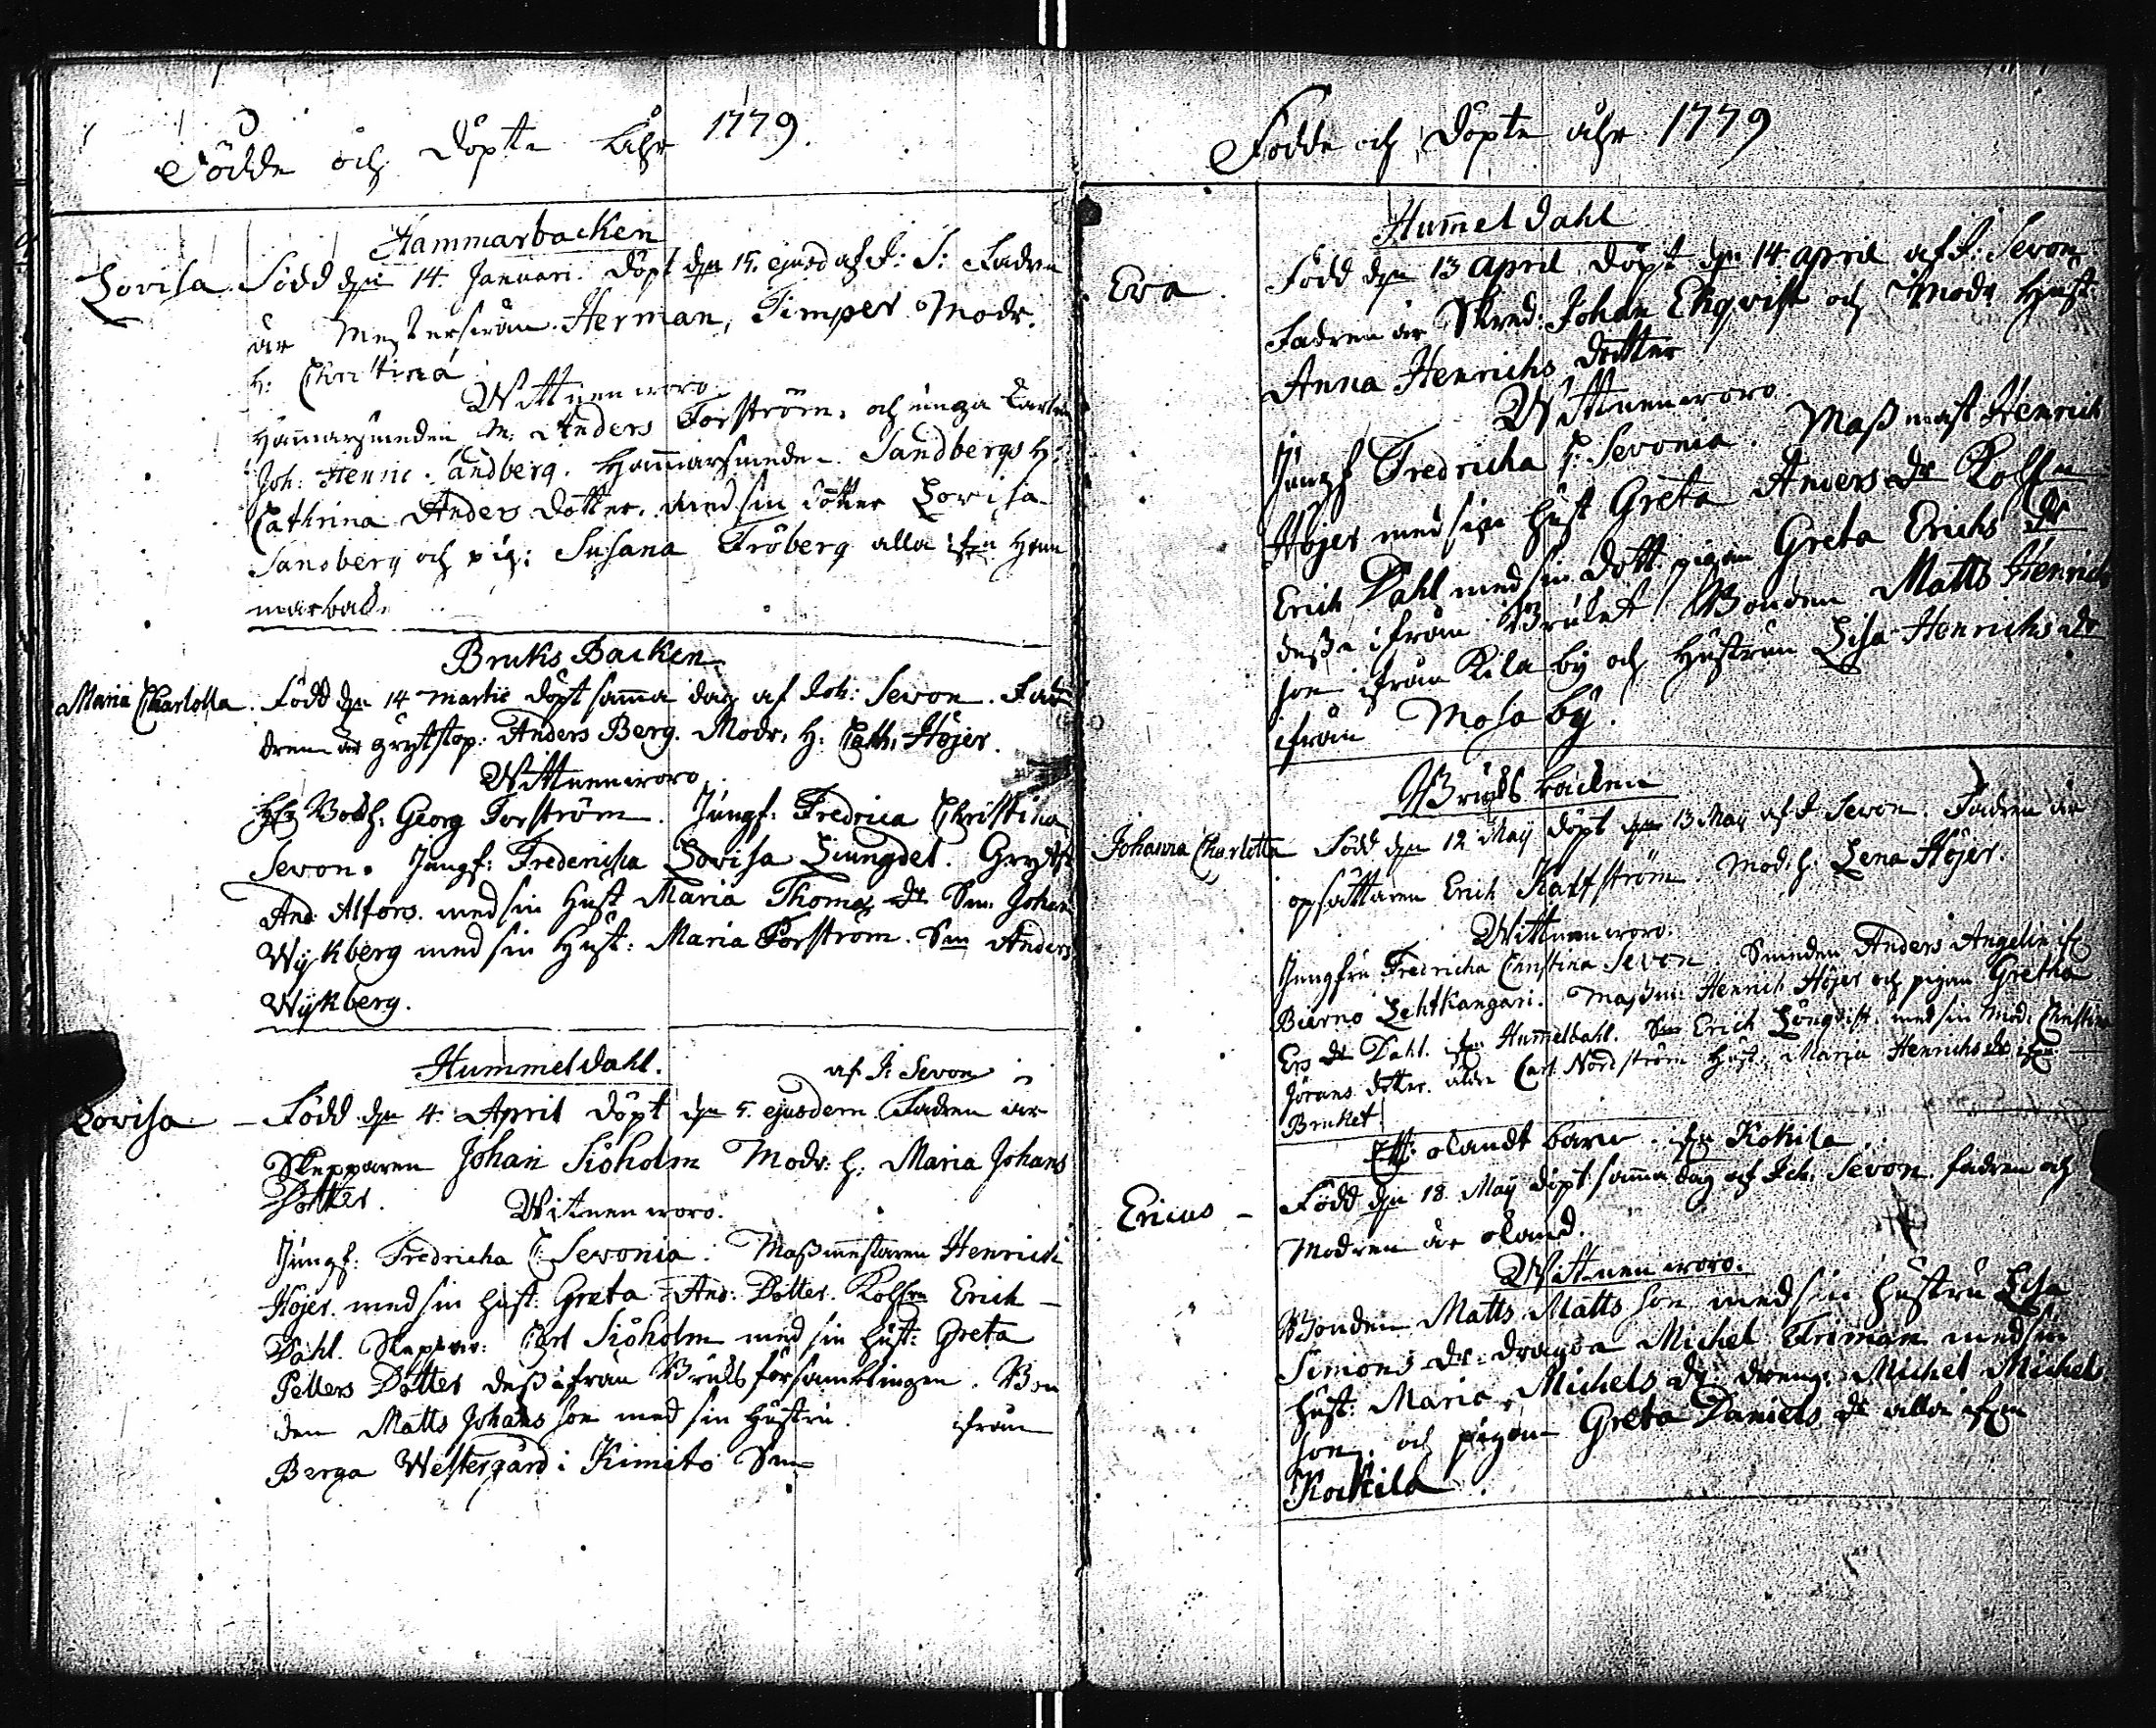 Födde och Döpte Åhr 1779.
Hammarbacken
Lovisa. Född den 14. Januari. Döpt den 15. ejusd af J: S: Fadren
är Mestersven Herman, Timper Modr.
h: Christina
Wittnen woro
Hammarsmeden M: Anders Forström, och unga Karlen
Joh: Henric Sandberg. Hammarsmeden Sandbergs H:
Cathrina Anders Dotter, med sin Dotter Lovisa
Sandberg och pig: Susana Fröberg alla ifrn Ham
marback.
Bruks Backen
Maria Charlotta. Född den 14 Martii döpt samma dag af Joh: Sevon. Fa
dren är grytstöp: Anders Berg. Modr. H: Cath: Höjer.
Wittnen woro
Bokh: Georg Forström. Jungf: Fredrica Christina
Sevon. Jungf: Fredericha Lovisa Liungdel. Grytst
And: Alfors. med sin Hust Maria Thomas dr Sm: Johan
Wykberg med sin Hust: Maria Forström. Sm Anders
Wykberg.
Hummeldahl. af J: Sevon
Lovisa - Född den 4. April Döpt den 5. ejusdem Fadren är
Skepparen Johan Siöholm Modr: h: Maria Johans
Dotter. Witnen woro.
Jungf: Fredricha C: Sevonia. Massmestaren Henrich
Höjer. med sin hust: Greta And: Dotter. Kolskr Erich
Dahl. Skeppar: Carl Siöholm med sin hust: Greta
Petters Dotter dess ifrån Bruksförsamblingen. Bon
den Matts Johans son med sin Hustru ifrån
Berga Westergård i Kimito Sn
Födde och Döpte åhr 1779
Hummeldahl
Eva. Född den 13 April, Döpt den 14 April af J: Sevon
Fadren är Skred: Johan Ekqvist och Modr Hust:
Anna Henrichs dotter
Wittnen woro.
Jungf Fredricha C: Sevonia. Massmast Henrich
Höjer med sin Hust Greta Anders dr Kolskr
Erich Dahl med sin dott. pigan Greta Erichs dr
dessa ifrån Bruket. Bonden Matts Henrich
son ifrån Kila by och Hustrun Lisa Henrichs dr
ifrån Mosa by.
Bruks backen
Johanna Charlotta Född den 12 Maij Döpt den 13 Maij af J Sevon. Fadren är
opsättaren Erich Kallström. Mod: h: Lena Höjer.
Wittnen woro.
Jungfru Fredricha Christina Sevon. Smeden Anders Angelin ifr
Bierno Lehtkangari. Massm: Henrich Höjer och pigan Gretha
Ers dr Dahl. ifrn Hummeldahl. Sm Erich Lönqvist, med sin Mod: Christina
Jörans dotter. äldre Carl Nordström Hust: Maria Henrichs dr ifrn
Bruket.
Ett olandt barn ifrn Kokila.
Ericus - Född den 18. Maij döpt samma dag af Joh: Sevon, fadren och
Modren är oland.
Wittnen woro.
Bonden Matts Matts son med sin Hustru Lisa
Simons dr. dragon Michel Friman med sin
hust: Maria Michels dr: dreng: Michel Michels
son, och pigan Greta Daniels dr alla ifrån
Kockila.